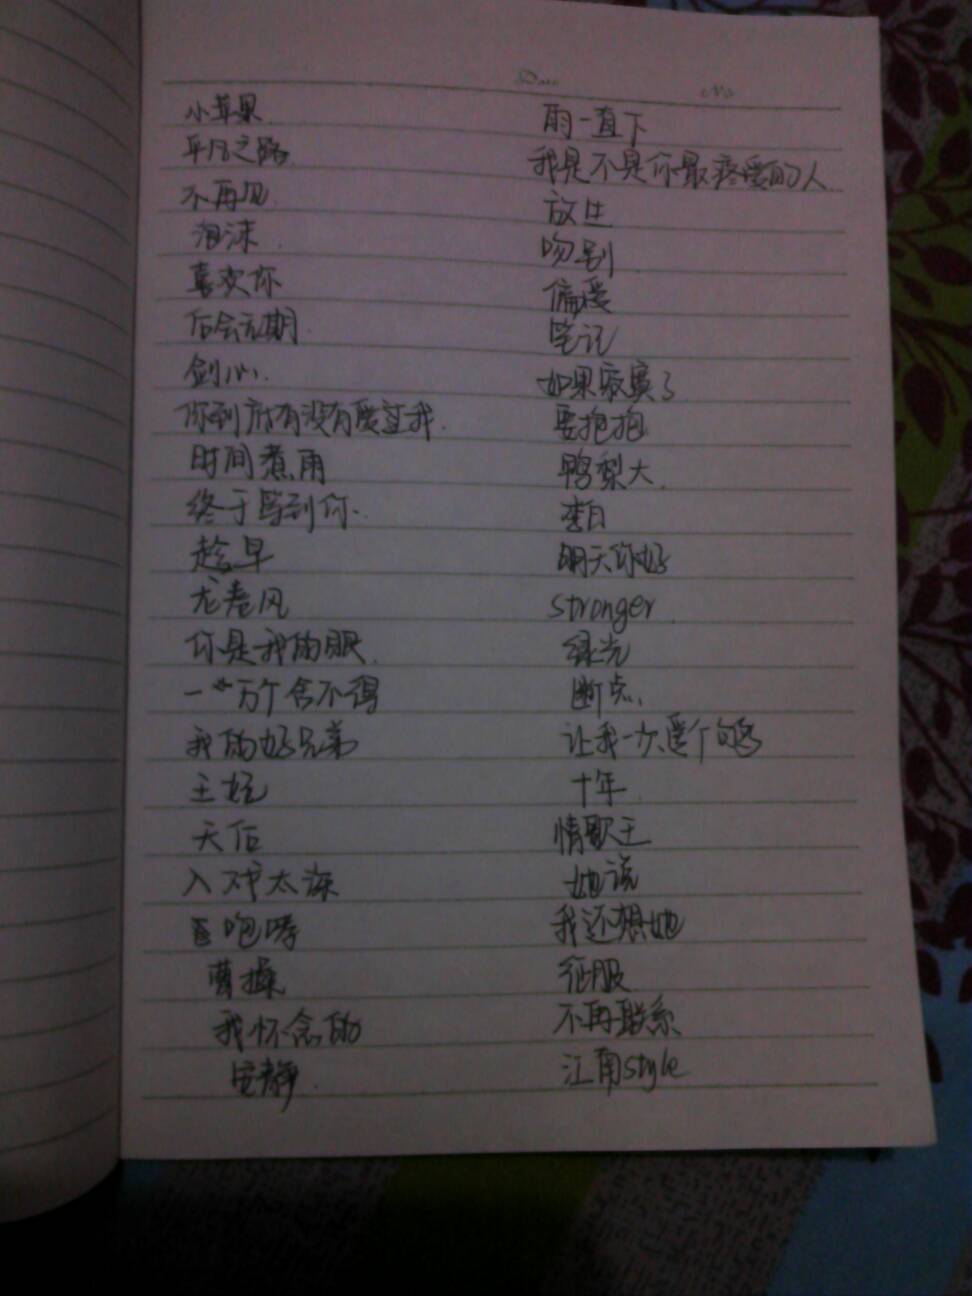 Date
No
小苹果
平凡之路
不再见
泡沫
喜欢你
后会无期
剑心
你到底有没有爱过我
时间煮雨
终于等到你
趁早
龙卷风
你是我的眼
一百万个舍不得
我的好兄弟
王妃
天后
入戏太深
咆哮
曹操
我怀念的
安静
雨一直下
我是不是你最疼爱的人
放生
吻别
偏爱
笔记
如果寂寞了
要抱抱
鸭梨大
李白
明天你好
stronger
绿光
断点
让我一次爱个够
十年
情歌王
她说
我还想她
征服
不再联系
江南style